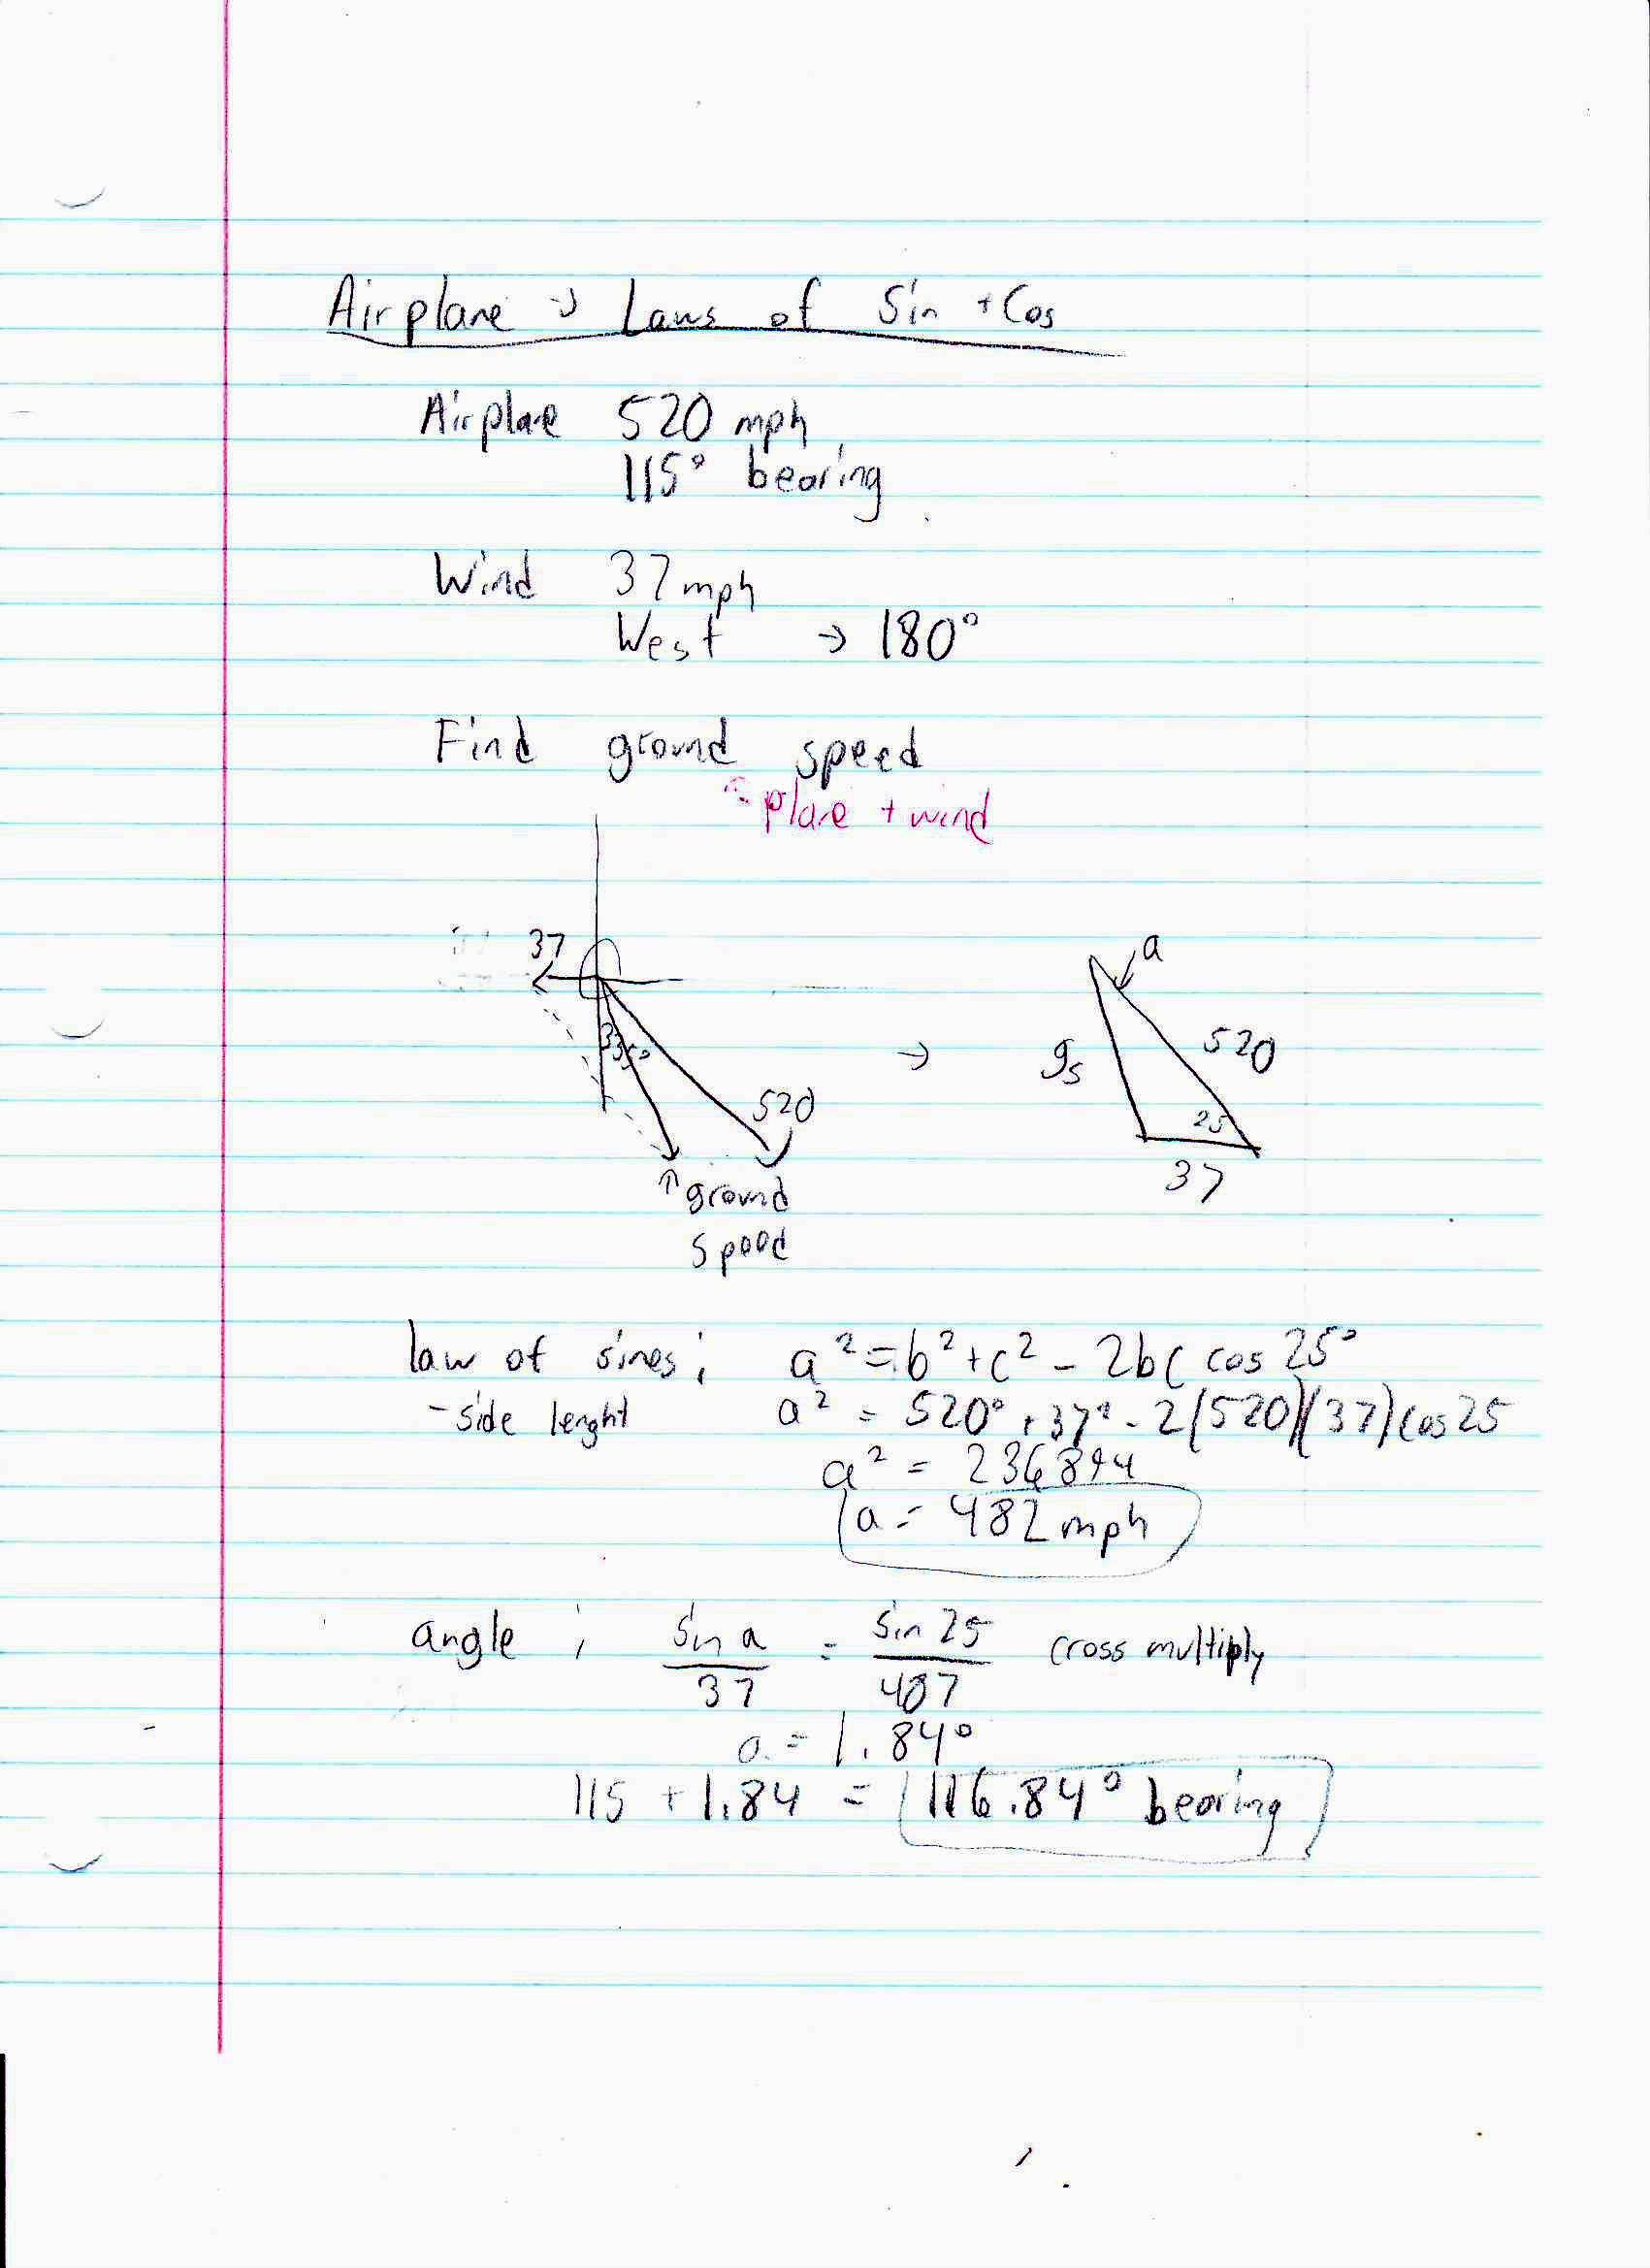 Airplane → Laws of Sin + Cos
Airplane 520 mph
115° bearing
Wind 37 mph
West → 180°
Find ground speed
plane + wind
37
520
ground
speed
→
a
gs
520
25
37
law of sines; a² = b² + c² - 2bc cos 25°
- side lenght a² = 520² + 37² - 2(520)(37) cos 25
a² = 236894
a = 482 mph
angle ; sin a / 37 = sin 25 / 487 cross multiply
a = 1.84°
115 + 1.84 = 116.84° bearing